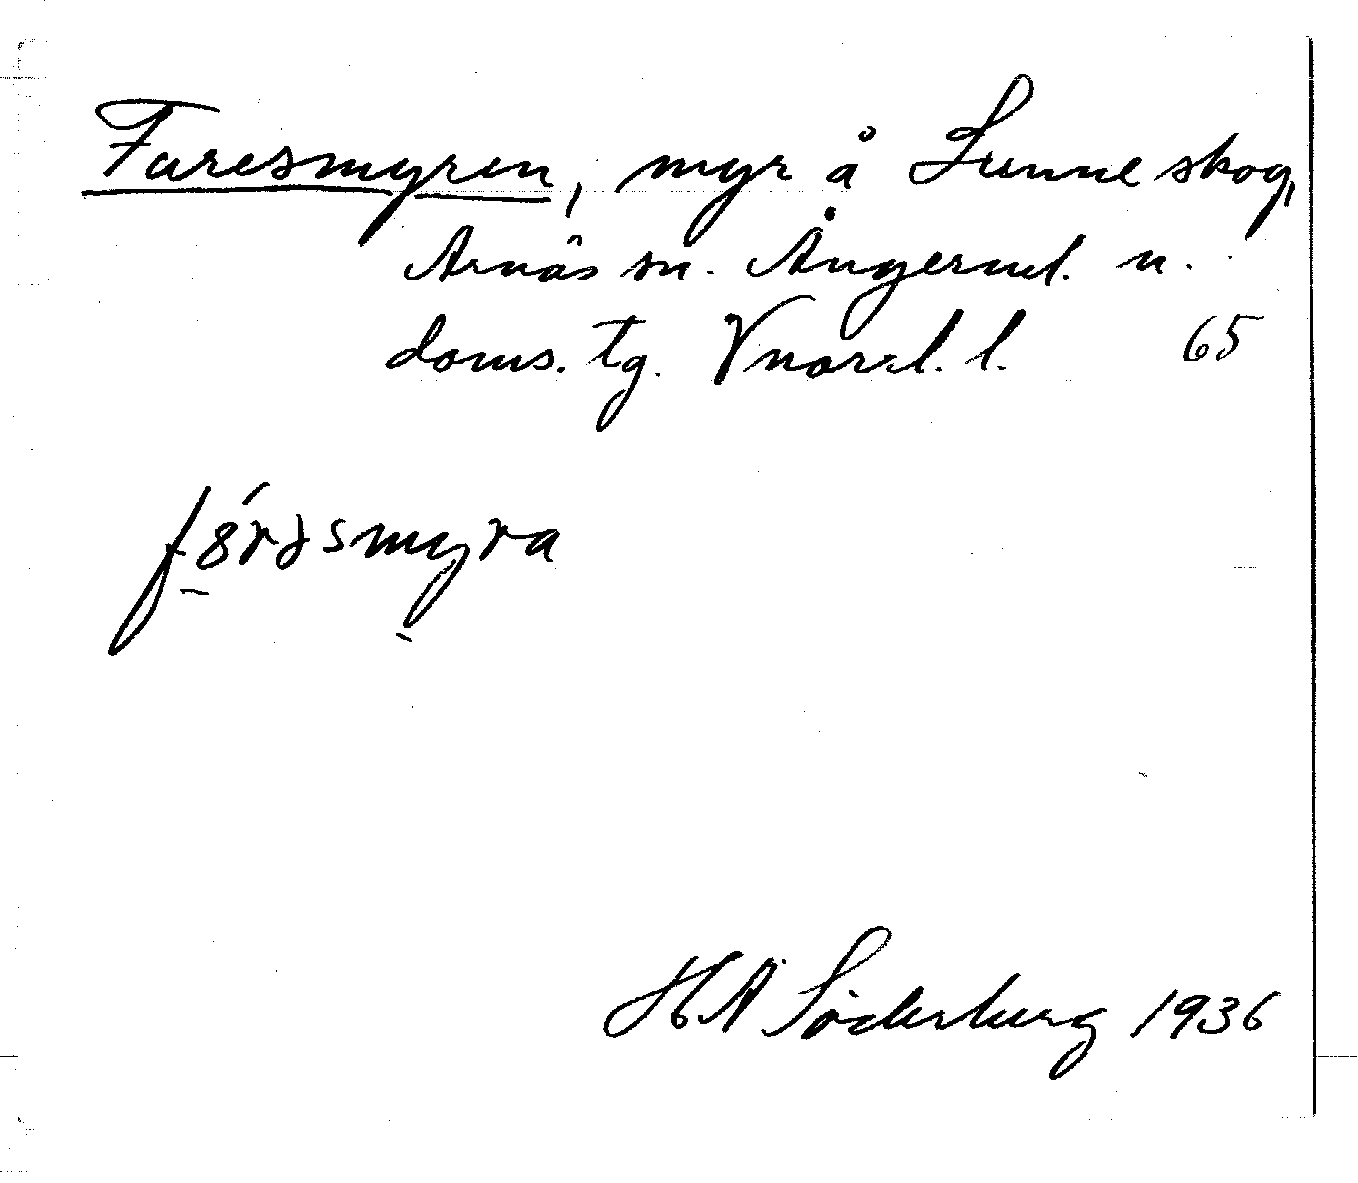 Faresmyren, myr å Sunne skog,
Arnäs sn. Ångerml. n.
doms. tg. Vnorrl. l. 65
HA Söderberg 1936